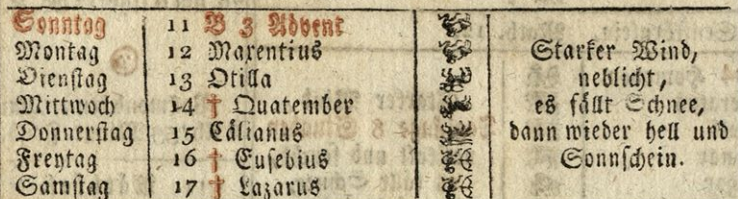 Sonntag 11 B 3 Advent
Montag 12 Maxentius Starker Wind,
Dienstag 13 Otilla neblicht,
Mittwoch 14 † Quatember es fällt Schnee,
Donnerstag 15 Cälianus dann wieder hell und
Freytag 16 † Eusebius Sonnschein.
Samstag 17 † Lazarus